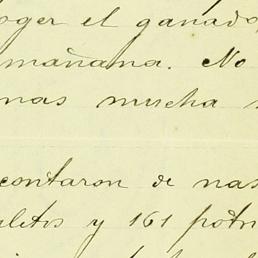 oger el ganado
mañana. No
mas mucha
contaron de nas
letes y 161 potr